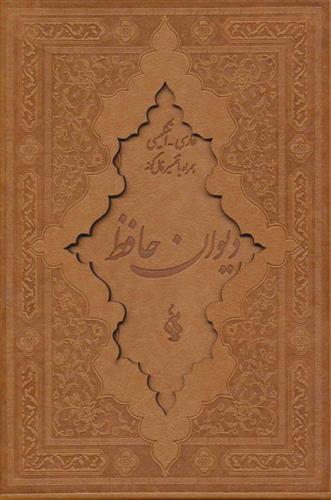 فارسی - انگلیسی
همراه با تفسیر فال‌گونه
دیوان حافظ